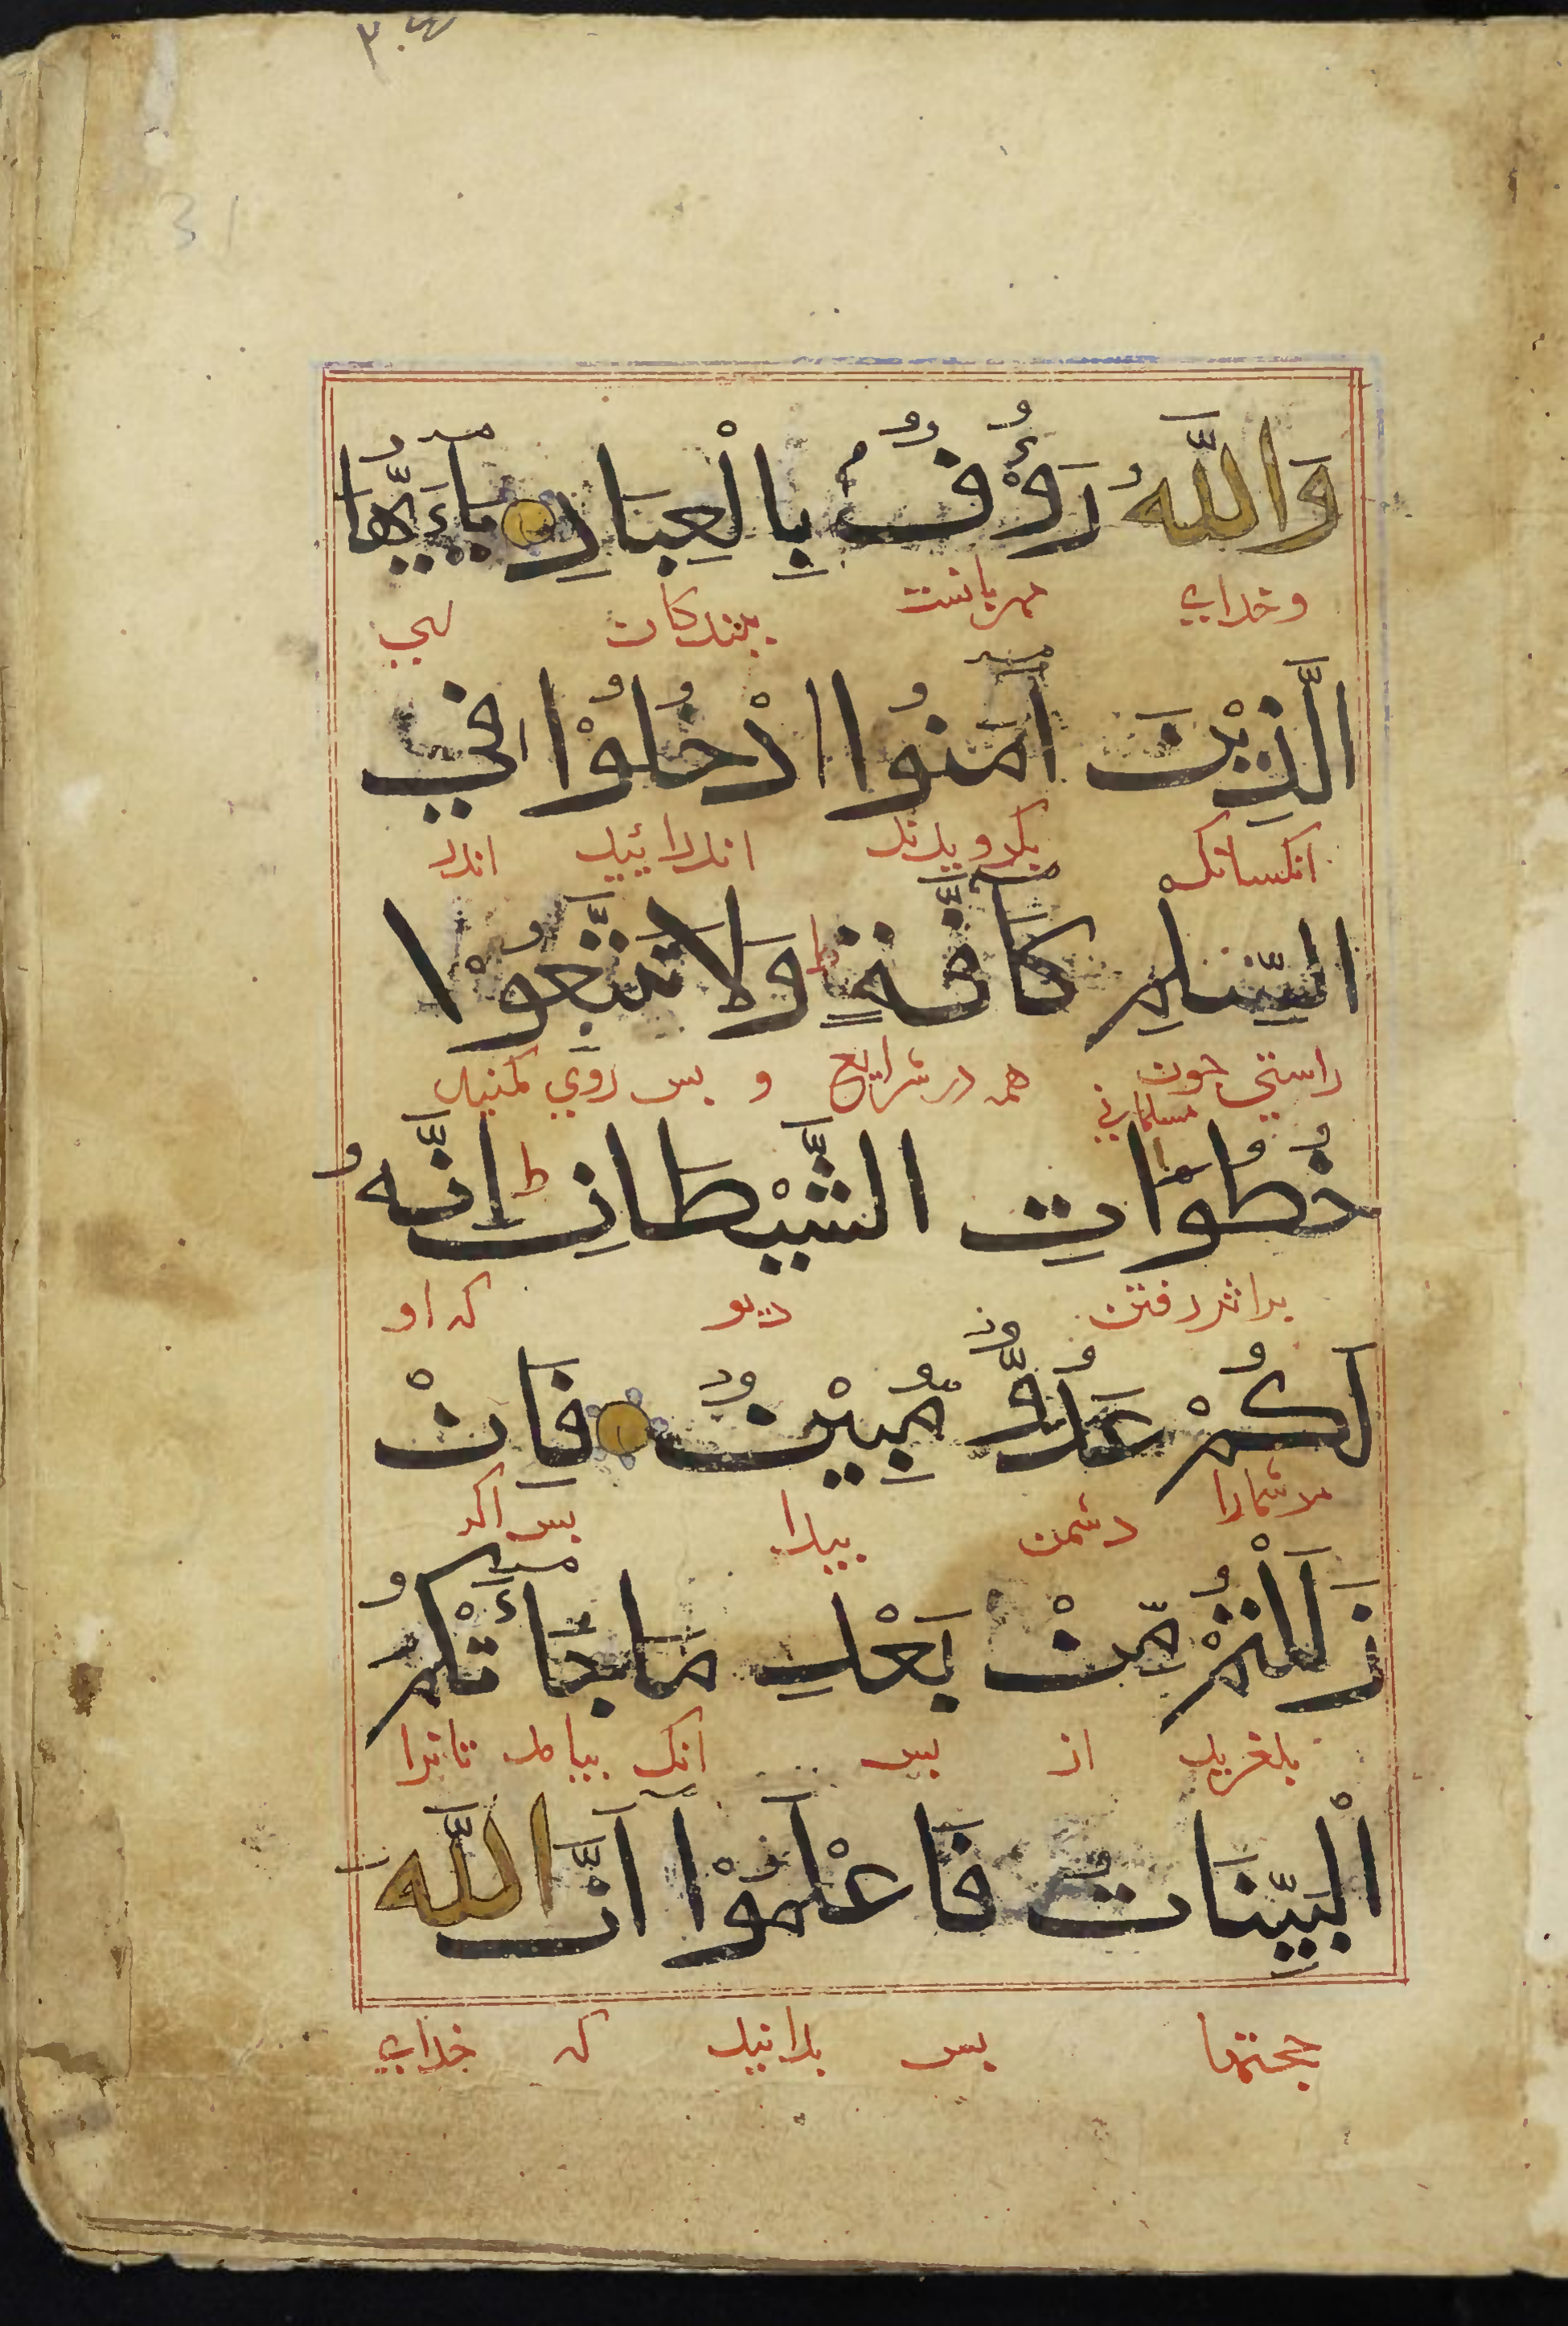 وَاللَّهُ رَؤُفٌ بِالْعِبَادِ يٰٓاَيُّهَا
وخدای مهربانست ببندکان ای
الَّذِيْنَ اٰمَنُوا ادْخُلُوْا فِي
انکسانک بکرویدند اندرائید اندر
السِّلْمِ كَآفَّةً ط وَلَا تَتَّبِعُوْا
راستی چون مسلمانی همه در شرایع و پس روی مکنید
خُطُوَاتِ الشَّيْطَانِ ط اِنَّهُ
بر اثر رفتن دیو که او
لَكُمْ عَدُوٌّ مُّبِيْنٌ فَاِنْ
مر شمارا دشمن پیدا پس اکر
زَلَلْتُمْ مِّنْ بَعْدِ مَا جَآءَتْكُمُ
بلغزید از پس انک بیامد
الْبَيِّنَاتُ فَاعْلَمُوْٓا اَنَّ اللَّهَ
حجتها پس بدانید که خدای
31